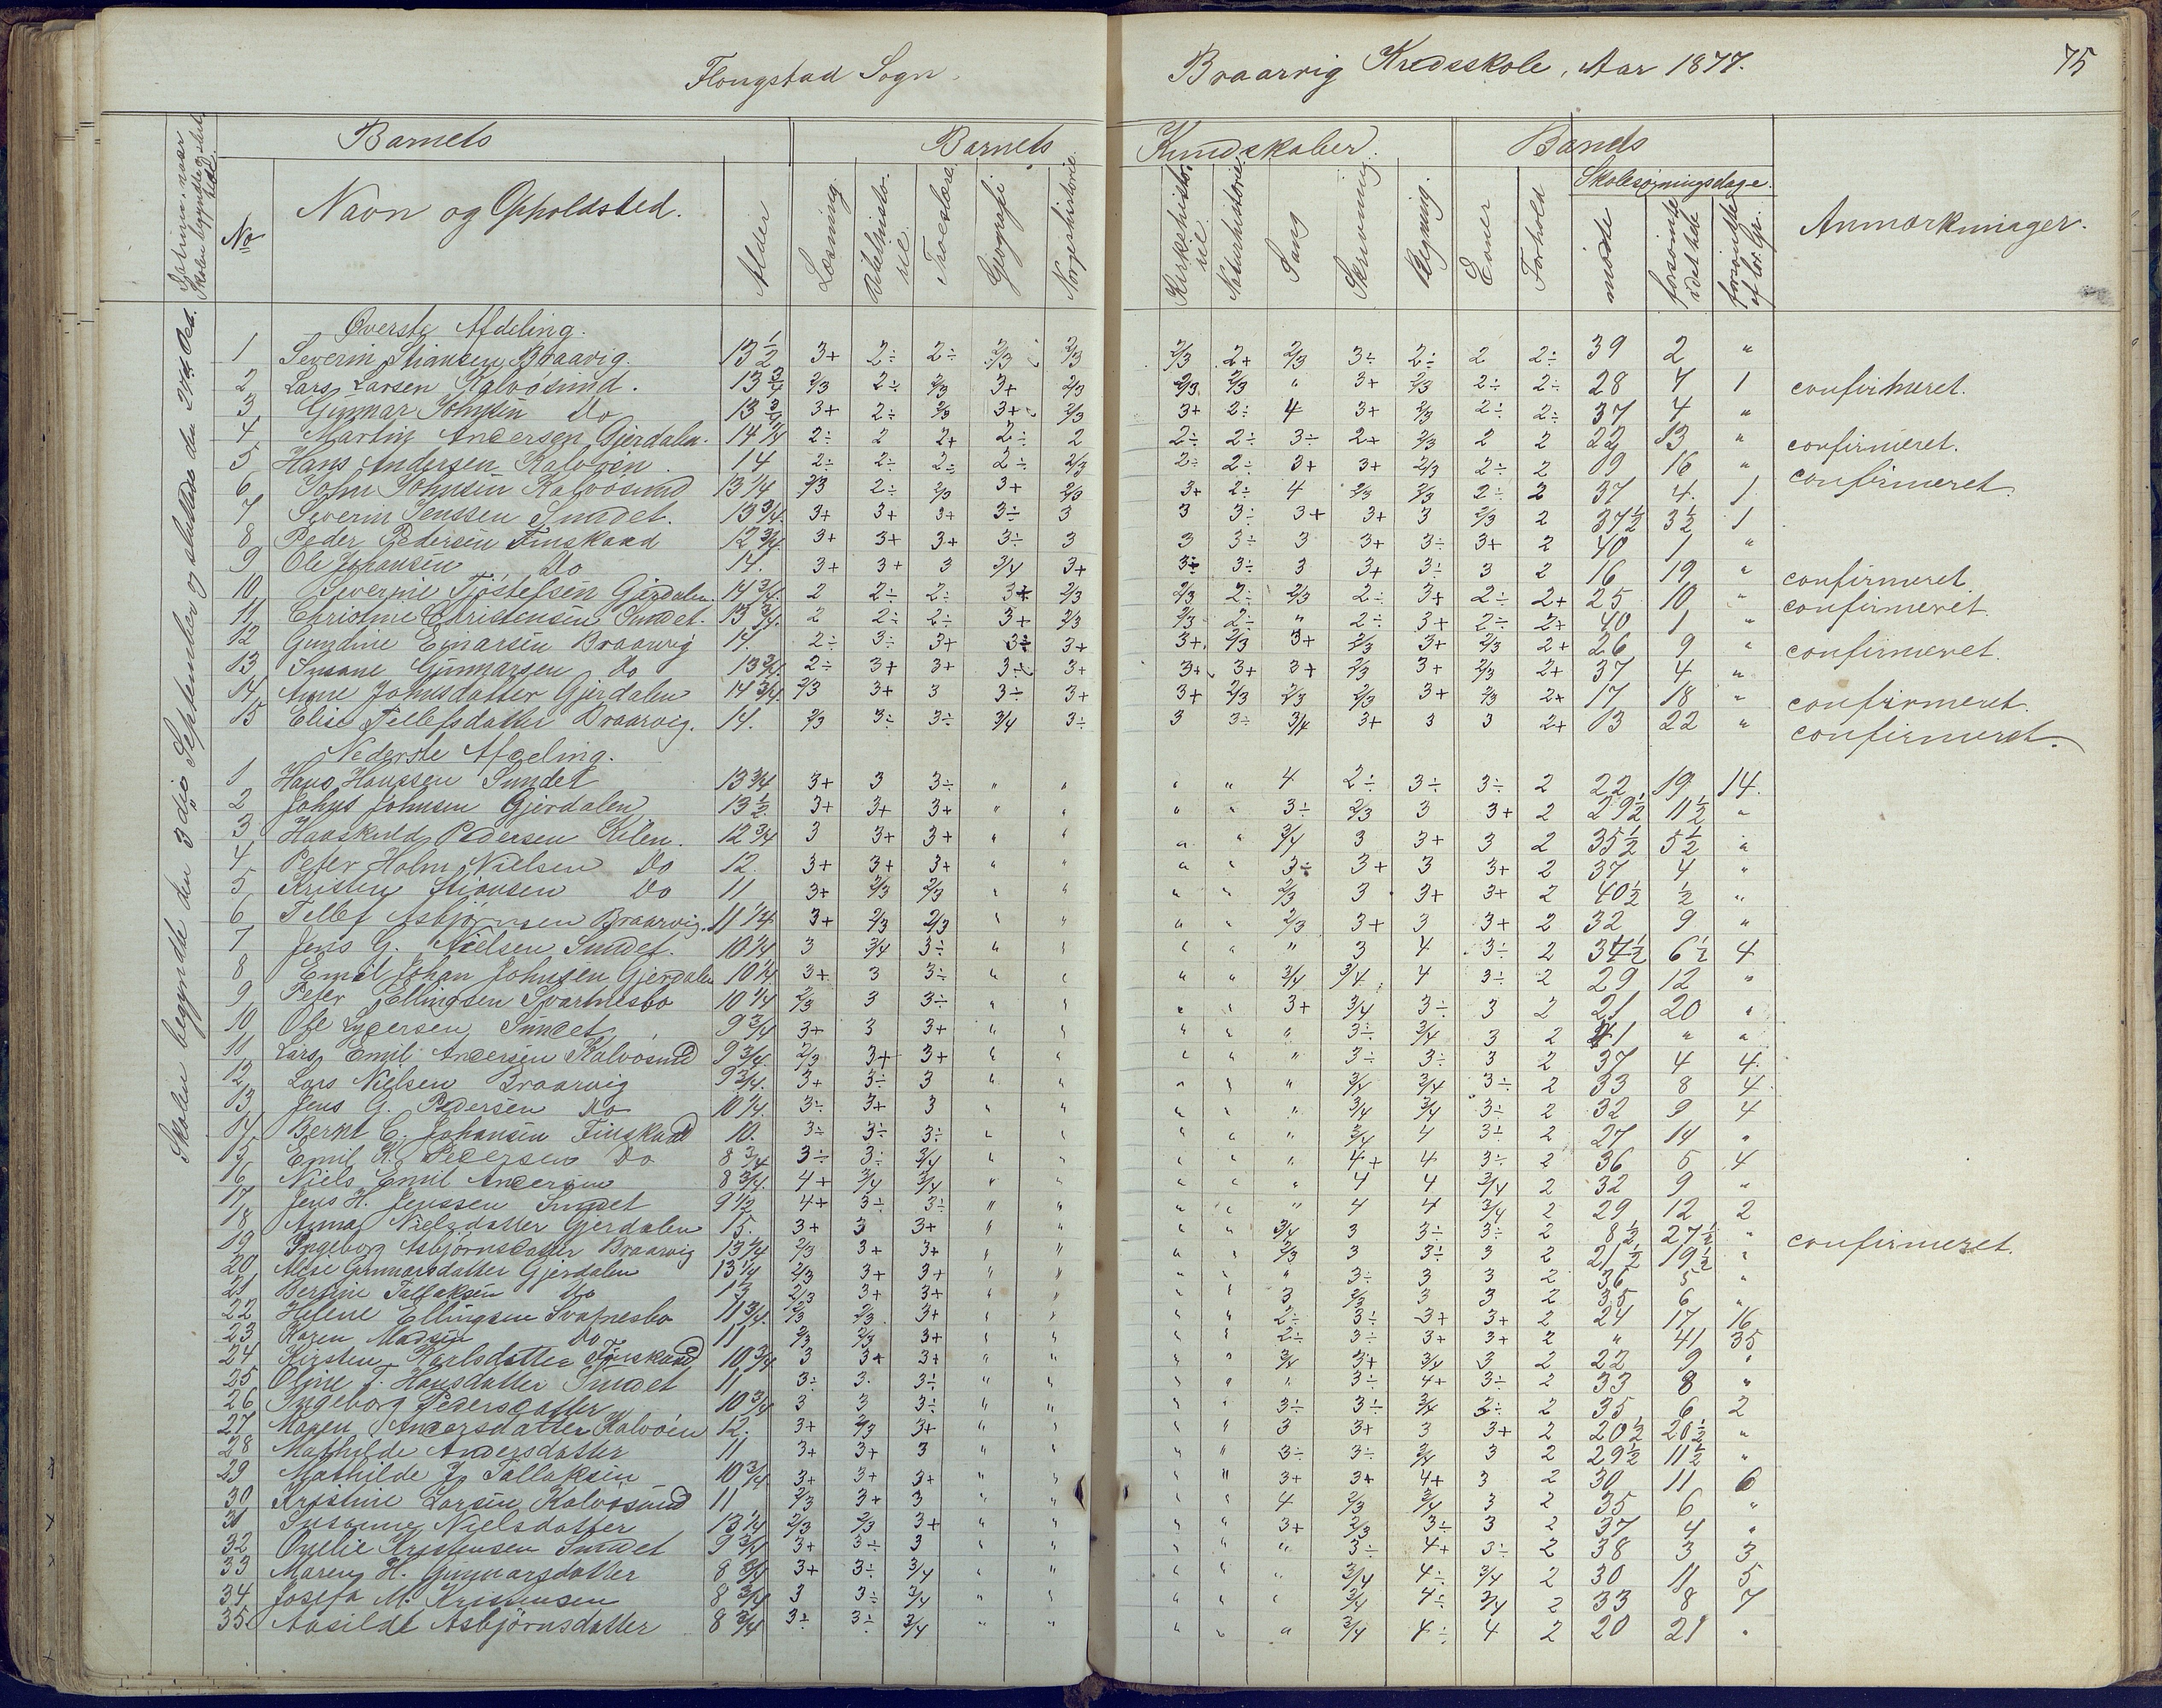 Flougstad Sogn.
Braarvig Kredsskole, Aar 1877.
75
Barnets
Barnets
Kundskaber.
Barnets
Skolesøgningsdage.
No
Navn og Opholdsted.
Alder
Læsning.
Bibelhistorie.
Troeslære
Geografi
Norgeshistorie.
Kirkehistorie.
Naturhistorie.
Sang
Skrivning
Regning.
Evner
Forhold
mødte
forsømte i det hele
forsømte af lov. Gr.
Anmærkninger.
Skolen begyndte den 3die September og sluttede den Oct.
Øverste Afdeling.
1 Severin Stiansen Braavig 13 1/2 3+ 2÷ 2÷ 2/3 2/3 2/3 2+ 2/3 3÷ 2÷ 2 2÷ 39 2 "
2 Lars Larsen Kalvøsund. 13 3/4 2/3 2÷ 2/3 3+ 2/3 2/3 2/3 " 3+ 2/3 2÷ 2÷ 28 7 1 confirmeret.
3 Gunnar Johnsen Do 13 3/4 3+ 2÷ 2/3 3+ 2/3 3+ 2÷ 4 3+ 2/3 2÷ 2÷ 37 4 "
4 Martin Andersen Gjerdalen. 14 1/4 2÷ 2 2+ 2÷ 2 2÷ 2÷ 3÷ 2+ 2/3 2 2 22 13 " confirmeret.
5 Hans Andersen Kalvøen. 14 2÷ 2÷ 2÷ 2÷ 2/3 2÷ 2÷ 3+ 3+ 2/3 2÷ 2 19 16 " confirmeret.
6 John Johnsen Kalvøsund 13 1/4 2/3 2÷ 2/3 3+ 2/3 3+ 2÷ 4 2/3 2/3 2÷ 2 37 4 1
7 Severin Jenssen Sundet. 13 3/4 3+ 3+ 3+ 3÷ 3 3 3÷ 3+ 3+ 3 2/3 2 37 1/2 3 1/2 1
8 Peder Pedersen Finskaad 12 3/4 3+ 3+ 3+ 3÷ 3 3 3÷ 3 3+ 3÷ 3+ 2 40 1 "
9 Ole Johansen Do 14. 3+ 3+ 3 3/4 3+ 3÷ 3÷ 3 3+ 3÷ 3 2 16 19 " confirmeret.
10 Severine Tjöstefsen Gjerdalen. 14 3/4 2 2÷ 2÷ 3+ 2/3 2/3 2÷ 2/3 2÷ 3+ 2÷ 2+ 25 10 " confirmeret
11 Christine Christensen Sundet. 13 3/4 2 2÷ 2÷ 3+ 2/3 2/3 2÷ " 2÷ 3+ 2÷ 2+ 40 1 "
12 Gundine Einarsen Braarvig 14. 2÷ 3÷ 3+ 3÷ 3+ 3+ 2/3 3+ 2/3 3+ 2/3 2+ 26 9 " confirmeret.
13 Susane Gunnarsen Do 13 3/4 2÷ 3+ 3+ 3÷ 3+ 3+ 3+ 3+ 2/3 3+ 2/3 2+ 37 4 "
14 Anne Johnsdatter Gjerdalen 14 3/4 2/3 3+ 3 3÷ 3+ 3+ 2/3 2/3 2/3 3+ 2/3 2+ 17 18 " confirmeret.
15 Elise Tellefsdatter Braarvig. 14. 2/3 3÷ 3÷ 3/4 3÷ 3 3÷ 3/4 3+ 3 3 2+ 13 22 " confirmeret.
Nederste Afdeling.
1 Hans Hanssen Sundet 13 3/4 3+ 3 3÷ " " " " 4 2÷ 3÷ 3÷ 2 22 19 14.
2 Johns Johnsen Gjerdalen 13 1/2 3+ 3+ 3+ " " " " 3÷ 2/3 3 3+ 2 29 1/2 11 1/2 "
3 Haaskuld Pedersen Kilen. 12 3/4 3 3+ 3+ " " " " 3/4 3 3+ 3 2 35 1/2 5 1/2 "
4 Peter Holm Nielsen Do 12. 3+ 3+ 3+ " " " " 3÷ 3+ 3 3+ 2 37 4 "
5 Kristen Stiansen Do 11 3+ 2/3 2/3 " " " " 2/3 3 3+ 3+ 2 40 1/2 1/2 "
6 Tellef Asbjörnsen Braarvig. 11 1/4 3+ 2/3 2/3 " " " " 2/3 3+ 3 3+ 2 32 9 "
7 Jens G. Nielsen Sundet. 10 1/4 3 3/4 3÷ " " " " " 3 4 3÷ 2 34 1/2 6 1/2 4
8 Emil Johan Johnsen Gjerdalen 10 1/4 3+ 3 3÷ " " " " 3/4 3/4 4 3÷ 2 29 12 "
9 Peter Ellingsen Svartnesbo 10 1/4 2/3 3 3÷ " " " " 3+ 3/4 3÷ 3 2 21 20 "
10 Ole Lydersen Sundet 9 3/4 3+ 3 3+ " " " " " 3÷ 3/4 3 2 41 " "
11 Lars Emil Andersen Kalvøsund 9 3/4 2/3 3+ 3+ " " " " " 3÷ 3÷ 3 2 37 4 4.
12 Lars Nielsen Braarvig 9 3/4. 3+ 3÷ 3 " " " " " 3/4 3/4 3÷ 2 33 8 4.
13 Jens G. Pedersen Do 10 1/4. 3÷ 3+ 3 " " " " " 3/4 3/4 3÷ 2 32 9 4
14 Bernt C. Johansen Finskaad 10. 3÷ 3÷ 3÷ " " " " " 3/4 4 3÷ 2 27 14 "
15 Emil K. Pedersen Do 8 3/4 3÷ 3÷ 3/4 " " " " " 4+ 4 3÷ 2 36 5 4
16 Niels Emil Andersen 8 3/4. 4+ 3/4 3/4 " " " " " 4 4 3/4 2 32 9 "
17 Jens H. Jenssen Sundet 9 1/2 4+ 3÷ 3÷ " " " " " 4 4 3/4 2 29 12 2
18 Anna Nielsdatter Gjerdalen 15. 3+ 3 3+ " " " " 3/4 3 3÷ 3÷ 2 8 1/2 27 1/2 " confirmeret.
19 Ingeborg Asbjörnsdatter Braarvig 13 1/4 2/3 3+ 3+ " " " " 2/3 3 3÷ 3 2 21 1/2 19 1/2 "
20 Gunnarsdatter Gjerdalen 13 1/4 2/3 3+ 3+ " " " " " 3÷ 3 3 2 36 5 "
21 Bertine Tallaksen Do 13 2/3 3+ 3+ " " " " 3 2/3 3 3 2 35 6 "
22 Helene Ellingsen Svartnesbo 11 3/4. 2/3 2/3 3+ " " " " 2÷ 3÷ 3+ 3+ 2 24 17 16
23 Karen Madsen Do 11 2/3 2/3 3+ " " " " 2÷ 3÷ 3+ 3+ 2 " 41 35
24 Kirsten Karlsdatter Finskaad 10 3/4 3 3+ 3+ " " " " 3/4 3+ 3/4 3 2 22 9 "
25 Oline T. Hansdatter Sundet 11 3÷ 3. 3÷ " " " " " 3÷ 4+ 3÷ 2 33 8 "
26 Ingeborg Pedersdatter 10 3/4 3 3 3÷ " " " " 3÷ 3÷ 3/4 3÷ 2 35 6 2
27 Maren Andersdatter Kalvøen 12. 3+ 2/3 3+ " " " " 3 3+ 3 3+ 2 20 1/2 20 1/2 "
28 Mathilde Andersdatter 11 3+ 3+ 3 " " " " 3÷ 3÷ 3/4 3 2 29 1/2 11 1/2 "
29 Mathilde J. Tallaksen 10 3/4 3+ 3+ 3+ " " " " 3+ 3+ 4+ 3 2 30 11 6
30 Kristine Larsen Kalvøsund 11 2/3 3+ 3 " " " " 4 2/3 3/4 3 2 35 6 "
31 Susanne Nielsdatter 13 1/4 2/3 2/3 3+ " " " " 3+ 2/3 3÷ 3 2 37 4 "
32 Kristensen Sundet 9 3/4 3+ 3÷ 3 " " " " " 3÷ 4+ 3÷ 2 38 3 3
33 Maren H. Gunnarsdatter 8 3/4 3+ 3÷ 3/4 " " " " " 3/4 4÷ 3/4 2 30 11 5
34 Josefa M. Kristensen 8 3/4 3 3÷ 3/4 " " " " " 3/4 4÷ 3/4 2 33 8 7
35 Aasilde Asbjörnsdatter 8 3/4 3÷ 3÷ 3/4 " " " " " 3/4 4÷ 4 2 20 21 "